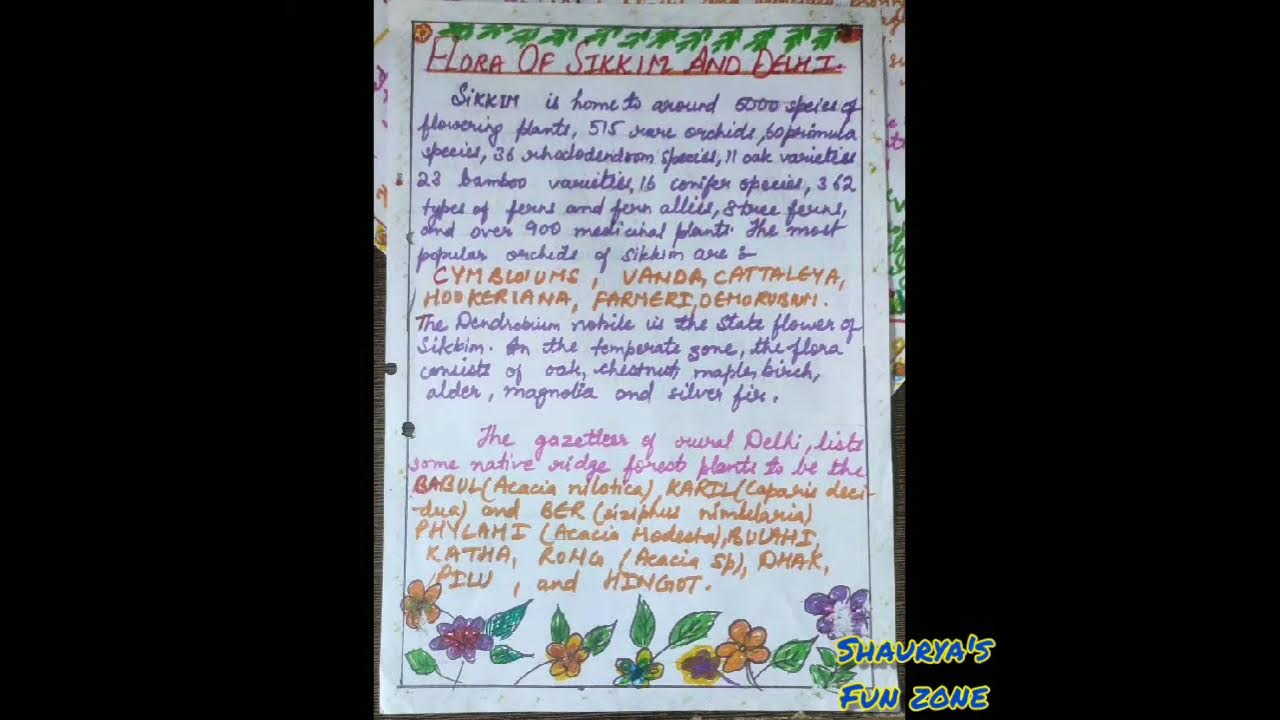 FLORA OF SIKKIM AND DELHI.
SIKKIM is home to around 5000 speies of
flowering plants, 515 rare orchids, 60 primula
species, 36 rhododendrom species, 11 oak varieties
23 bamboo varieties, 16 conifer species, 362
types of ferns and fern allies, 8 tree ferns,
and over 900 medicinal plants. The most
popular orchids of Sikkim are :-
CYMBIDIUMS, VANDA, CATTALEYA,
HOOKERIANA, FARMERI,
The Dendrobium nobile is the state flower of
Sikkim. In the temperate zone, the flora
consists of oak, chestnut, maple, birch,
alder, magnolia and silver fir.
The gazetteer of rural Delhi, lists
some native ridge forest plants to be the
BABUL (Acacia nilotica), KARIL (Caparis deci-
-dua) and BER (ziziphus
PHYLAHI (Acacia Modesta), BULAHI,
KATHA, RONG (Acacia sp), DHAK,
PILU, and HINGOT.
SHAURYA'S
FUN ZONE